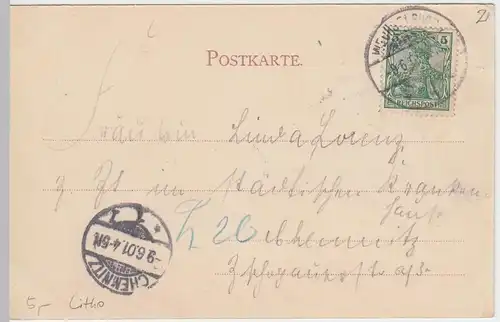 POSTKARTE.
5
REICHSPOST
Fräulein Linda Lorenz
z. Zt im Städtischen Kranken
haus
Z 20 Chemnitz
CHEMNITZ
-9.6.01.4-5N.
5,- Litho